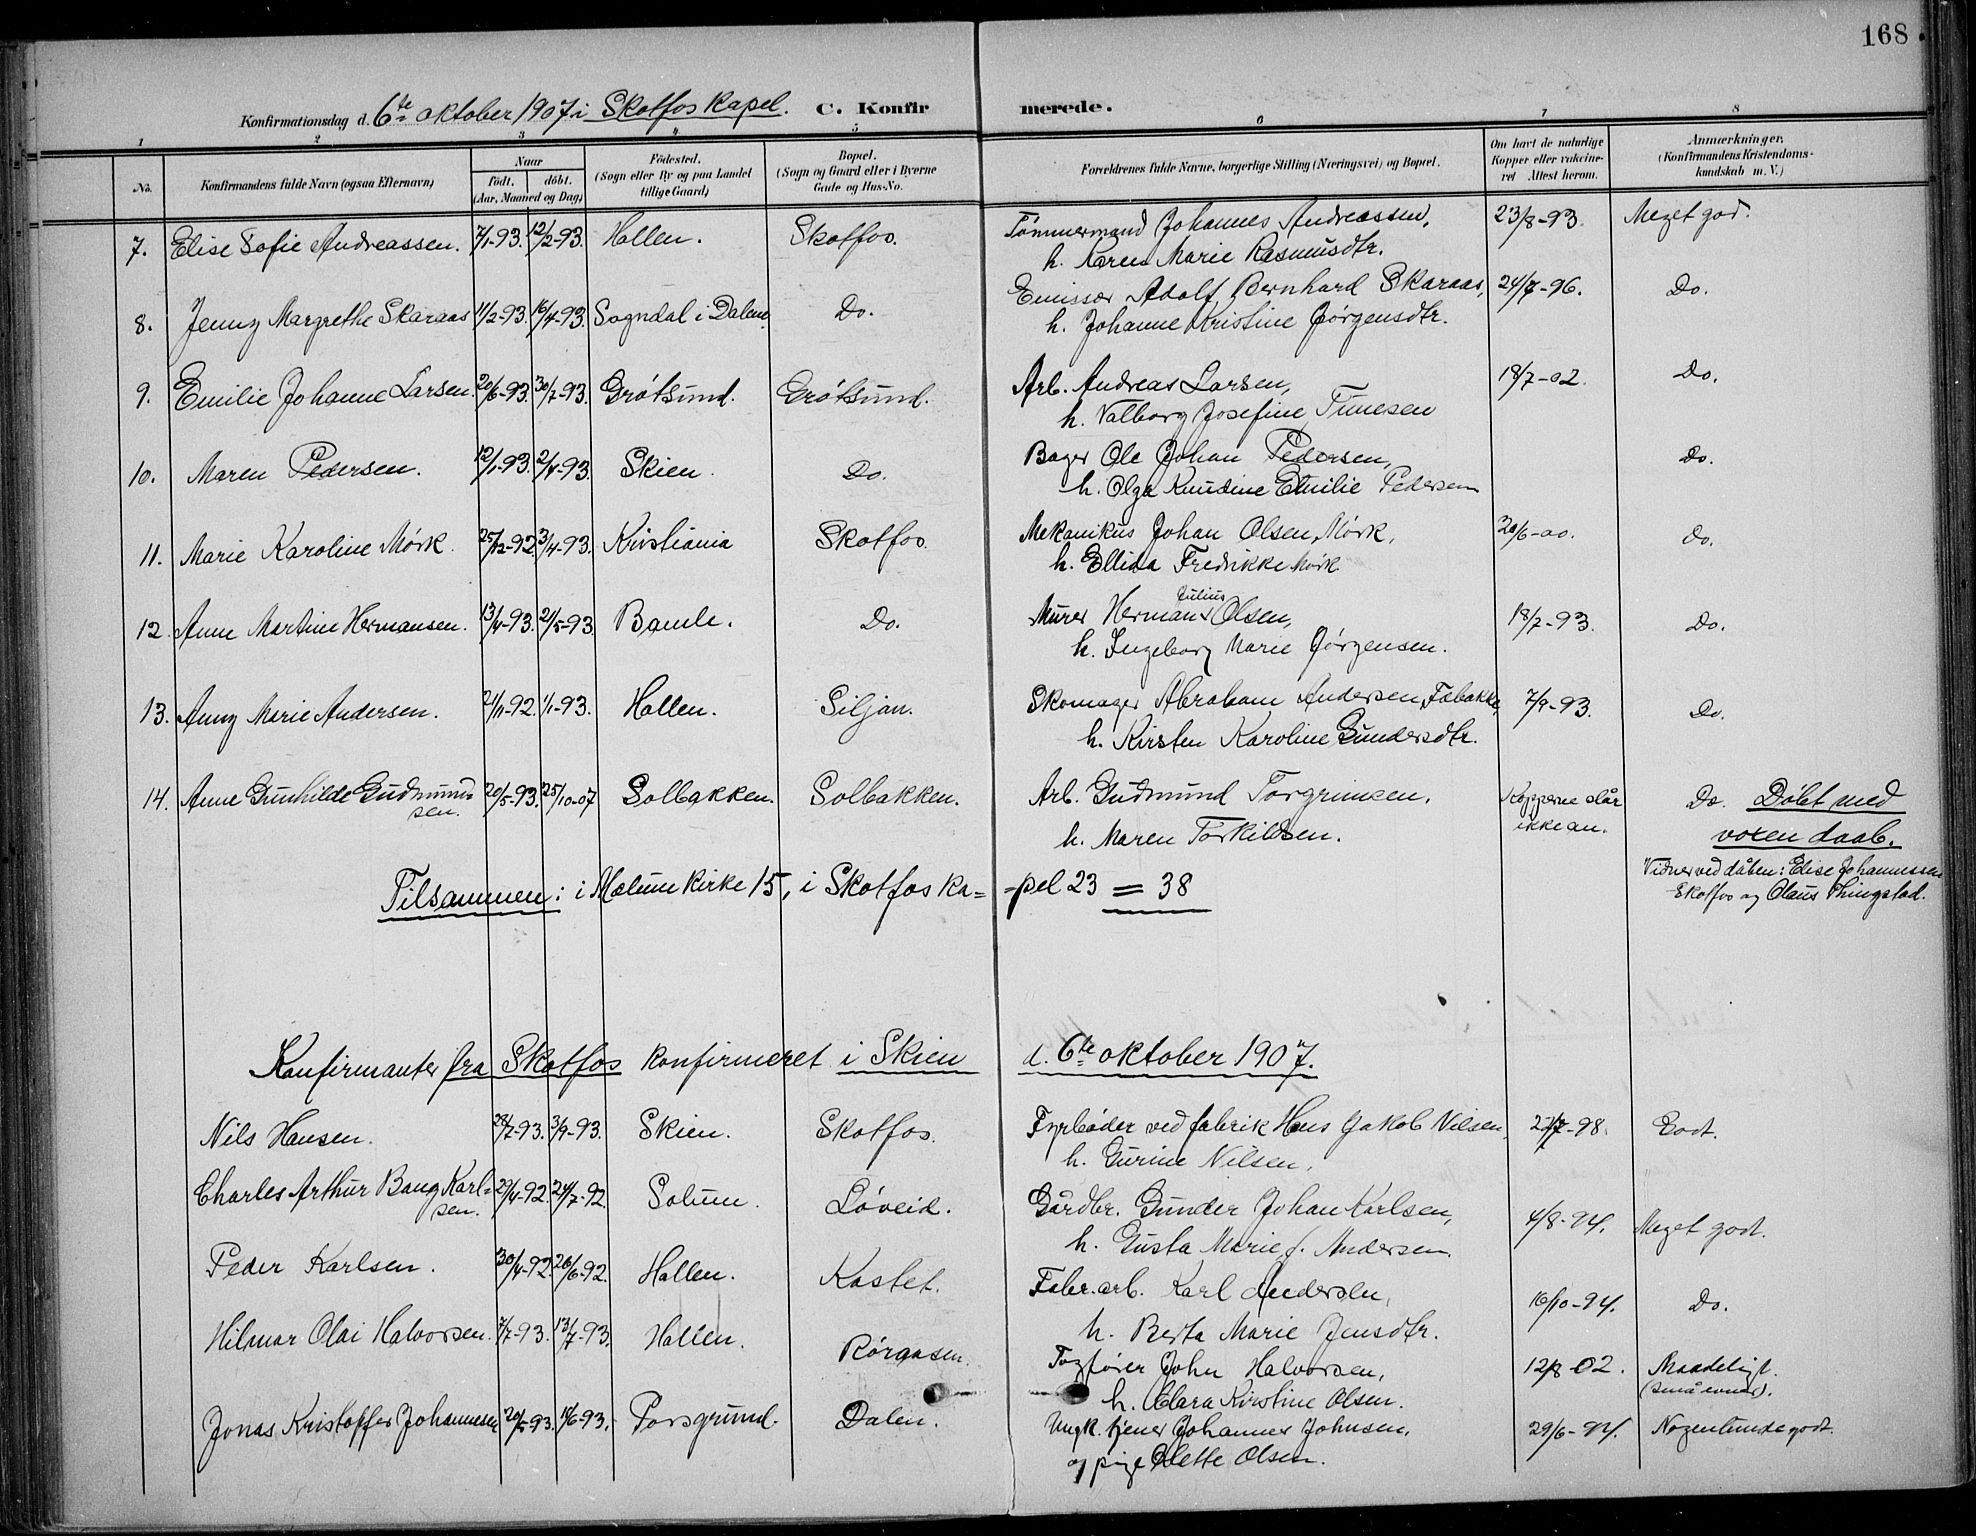 168
Konfirmationsdag d. 6te oktober 1907 i Skotfos Kapel. C. Konfir merede.
1 2 3 4 5 6 7 8
No.
Konfirmandens fulde Navn (ogsaa Efternavn)
Naar
født. døbt.
(Aar, Maaned og Dag)
Fødested.
(Sogn eller By og paa Landet
tillige Gaard)
Bopæl.
(Sogn og Gaard eller i Byerne
Gade og Hus-No.
Forældrenes fulde Navne, borgerlige Stilling (Næringsvei) og Bopæl.
Om havt de naturlige
Kopper eller vakcine-
ret Attest herom.
Anmærkninger.
(Konfirmandens Kristendoms-
kundskab m. V.)
7. Elise Sofie Andreassen. 7/1-93. 12/2-93. Hollen. Skotfos. Tømmermand Johannes Andreassen, 23/8-93. Meget god.
h. Karen Marie Rasmusdtr.
8. Jenny Margrethe Skaraas 11/2-93. 16/4-93. Sogndal i Dalene. Do. Emissær Adolf Bernhard Skaraas, 24/7-96. Do.
h. Johanne Kristine Jørgensdtr.
9. Emilie Johanne Larsen. 20/6-93. 30/7-93. Grøtsund. Grøtsund. Arb. Andreas Larsen, 18/7-02. Do.
h. Valborg Josefine Tunesen
10. Maren Pedersen. 12/1-93. 2/4-93. Skien. Do. Bager Ole Johan Pedersen, Do.
h. Olga Knudine Emilie Pedersen
11. Marie Karoline Mørk. 25/12-92. 3/4-93. Kristiania Skotfos. Mekanikus Johan Olsen Mørk, 20/6-00. Do.
h. Ellida Fredrikke Mørk.
12. Anne Martine Hermansen. 13/4-93. 21/5-93. Bamle. Do. Murer Herman Julius Olsen, 18/7-93. Do.
h. Ingeborg Marie Jørgensen.
13. Anny Marie Andersen. 21/11-92. 1/1-93. Hollen. Siljan. Skomager Abraham Andersen Fæbakke, 7/9-93. Do.
h. Kirsten Karoline Gundersdtr.
14. Anne Gunhilde Gudmund- 20/5-93. 25/10-07 Solbakken. Solbakken. Arb. Gudmund Torgrimsen, Kopperne slår Do. Døbt med
sen. h. Maren Torkildsen. ikke an. voxen daab.
Vidner ved dåben: Elise Johannessen
Skotfos og Olaus Thingstad.
Tilsammen: i Melum kirke 15, i Skotfos ka- -pel 23 = 38
Konfirmanter fra Skotfos konfirmeret i Skien d. 6te oktober 1907.
Nils Hansen. 28/7-93. 3/9-93. Skien. Skotfos. Fyrbøder ved fabrik Hans Jakob Nilsen, 22/7-98. Godt.
h. Gurine Nilsen.
Charles Arthur Bang Karl- 29/4-92. 24/7-92. Solum. Løveid. Gårdbr. Gunder Johan Karlsen, 4/8-94. Meget godt.
sen. h. Gusta Marie f. Andersen.
Peder Karlsen. 30/4-92. 26/6-92. Hollen. Kastet. Fabr.arb. Karl Andersen, 16/10-94. Do.
h. Berta Marie Jensdtr.
Hilmar Olai Halvorsen. 7/7-93. 13/7-93. Hollen. Rørgasen. Togfører John Halvorsen, 12/8-02. Maadeligt.
h. Clara Kirstine Olsen. (små evner).
Jonas Kristoffer Johannesen 20/5-93. 18/6-93. Porsgrund. Dalen. Ungk. tjener Johannes Johnsen, 29/6-94. Nogenlunde godt.
og pige Olette Olsen.